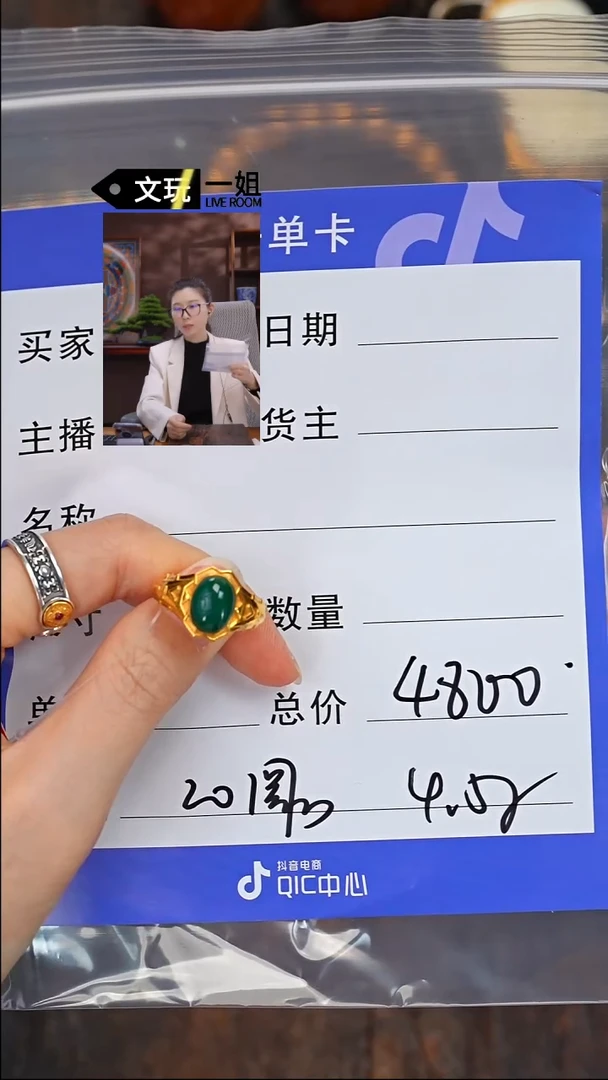 文玩一姐
LIVE ROOM
单卡
买家
日期
主播
货主
名称
尺寸
数量
单
总价
4800
20圈口
4.5g
抖音电商
QIC中心